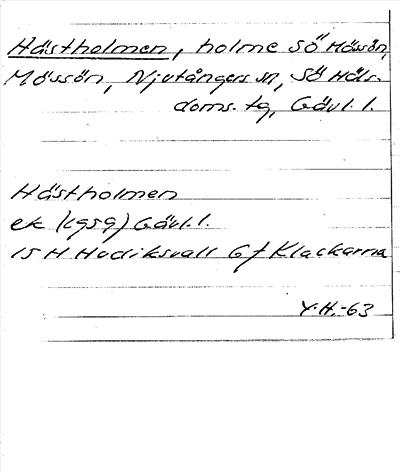 Hästholmen, holme SÖ Mössön,
Mössön, Njutångers sn, Sö Häls.
doms. tg, Gävl. l.
Hästholmen
ek (1959) Gävl. l.
15 H Hudiksvall G f Klackarna
Y.H.-63